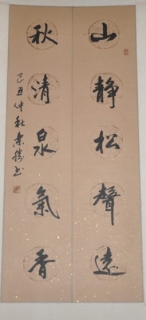 山靜松聲遠
秋清泉氣香
己丑仲秋